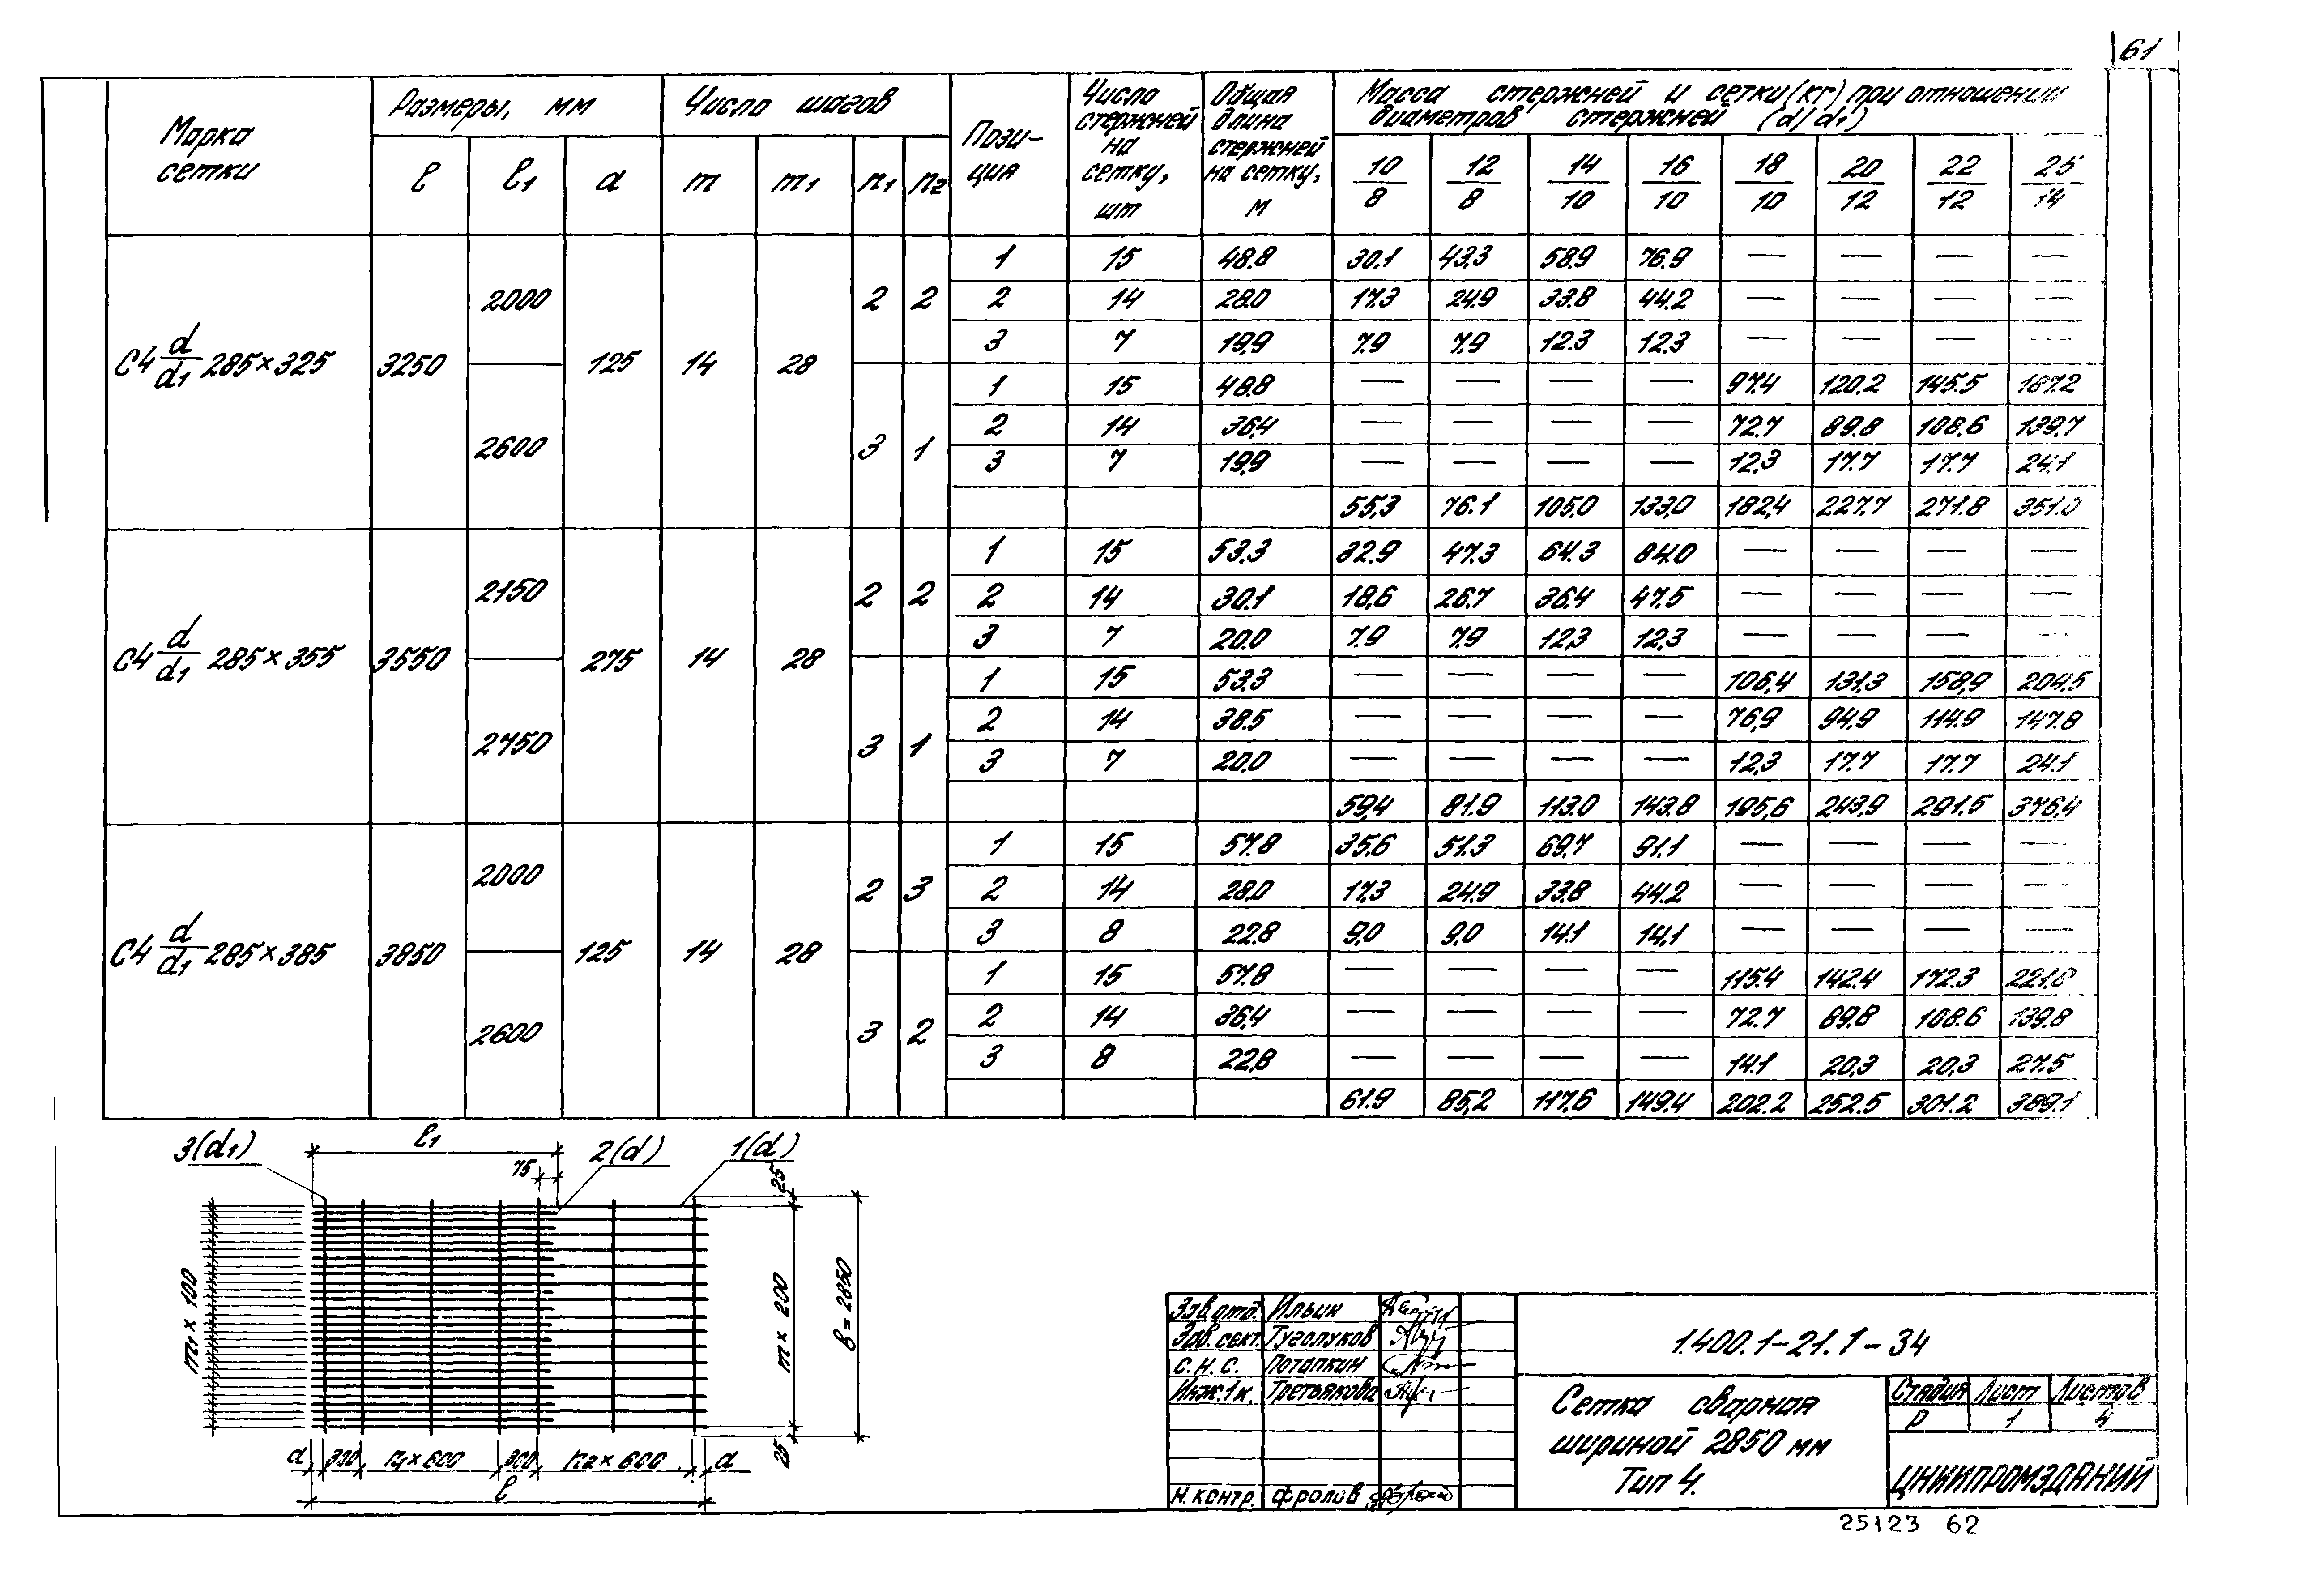 61
Марка сетки | Размеры, мм | Число шагов | Пози- ция | Число стержней на сетку, шт | Общая длина стержней на сетку, м | Масса стержней и сетки (кг) при отношении диаметров стержней (d/d1)
l | l1 | a | m | m1 | n1 | n2 | 10/8 | 12/8 | 14/10 | 16/10 | 18/10 | 20/12 | 22/12 | 25/14
С4 d/d1 285×325 | 3250 | 2000 | 125 | 14 | 28 | 2 | 2
1 | 15 | 48.8 | 30.1 | 43,3 | 58.9 | 76.9 | — | — | — | —
2 | 14 | 28.0 | 17.3 | 24.9 | 33.8 | 44.2 | — | — | — | —
3 | 7 | 19,9 | 7.9 | 7.9 | 12.3 | 12,3 | — | — | — | —
2600 | 3 | 1
1 | 15 | 48.8 | — | — | — | — | 97.4 | 120.2 | 145.5 | 187.2
2 | 14 | 36,4 | — | — | — | — | 72.7 | 89.8 | 108.6 | 139.7
3 | 7 | 19,9 | — | — | — | — | 12,3 | 17.7 | 17.7 | 24.1
55,3 | 76.1 | 105,0 | 133,0 | 182,4 | 227.7 | 271.8 | 351.0
С4 d/d1 285×355 | 3550 | 2150 | 275 | 14 | 28 | 2 | 2
1 | 15 | 53.3 | 32.9 | 47.3 | 64.3 | 84.0 | — | — | — | —
2 | 14 | 30.1 | 18,6 | 26.7 | 36.4 | 47.5 | — | — | — | —
3 | 7 | 20.0 | 7.9 | 7.9 | 12,3 | 12,3 | — | — | — | —
2750 | 3 | 1
1 | 15 | 53.3 | — | — | — | — | 106,4 | 131,3 | 158,9 | 204,5
2 | 14 | 38.5 | — | — | — | — | 76,9 | 94,9 | 114.9 | 147.8
3 | 7 | 20.0 | — | — | — | — | 12,3 | 17.7 | 17.7 | 24.1
59,4 | 81.9 | 113.0 | 143.8 | 195,6 | 243,9 | 291.5 | 376,4
С4 d/d1 285×385 | 3850 | 2000 | 125 | 14 | 28 | 2 | 3
1 | 15 | 57.8 | 35.6 | 51.3 | 69,7 | 91.1 | — | — | — | —
2 | 14 | 28.0 | 17.3 | 24.9 | 33,8 | 44.2 | — | — | — | —
3 | 8 | 22.8 | 9,0 | 9.0 | 14.1 | 14,1 | — | — | — | —
2600 | 3 | 2
1 | 15 | 57.8 | — | — | — | — | 115.4 | 142.4 | 172.3 | 221.8
2 | 14 | 36,4 | — | — | — | — | 72.7 | 89.8 | 108.6 | 139.8
3 | 8 | 22,8 | — | — | — | — | 14.1 | 20,3 | 20,3 | 27.5
61.9 | 85,2 | 117,6 | 149.4 | 202.2 | 252.5 | 301.2 | 389.1
3(d1) l1 2(d) 1(d)
75
25
m1 × 100
m × 200
в = 2850
25
a 300 n1 × 600 300 n2 × 600 a
l
Зав.отд. Ильин
Зав.сект. Туголуков
С.Н.С. Потапкин
Инж.1к. Третьякова
Н.контр. Фролов
1.400.1-21.1-34
Сетка сварная
шириной 2850 мм
Тип 4.
Стадия Лист Листов
Р 1 4
ЦНИИПРОМЗДАНИЙ
25123 62